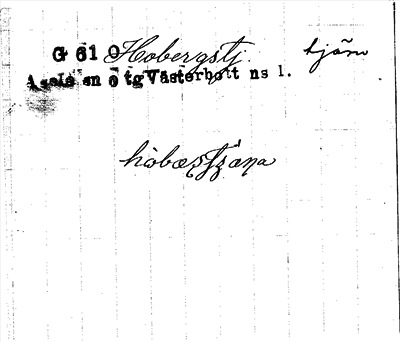 G 61 O Hobergstj. tjärn
Åsele sn o tg Västerbott ns l.
hòbæstjä́ṇa